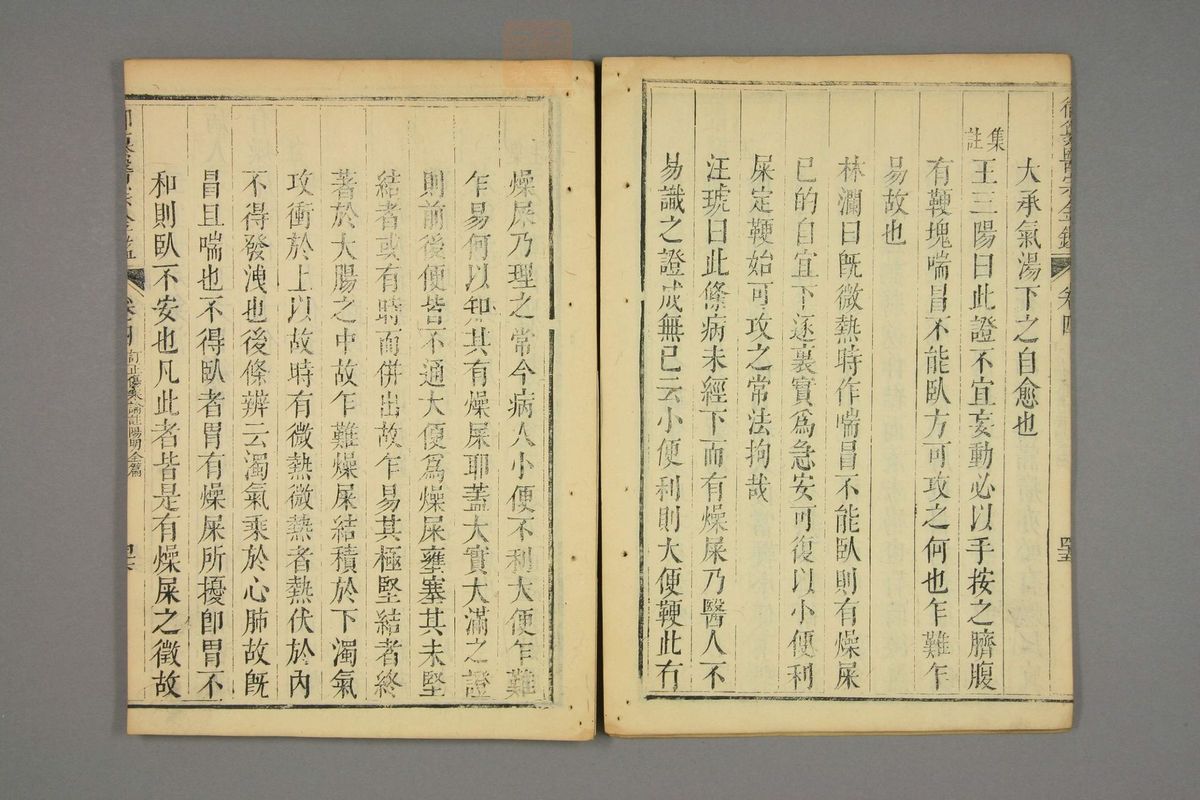 御纂醫宗金鑑 卷四
大承氣湯下之自愈也
集註
王三陽曰此證不宜妄動必以手按之臍腹
有鞕塊喘冒不能臥方可攻之何也乍難乍
易故也
林瀾曰旣微熱時作喘冒不能臥則有燥屎
已的自宜下逐裏實爲急安可復以小便利
屎定鞕始可攻之常法拘哉
汪琥曰此條病未經下而有燥屎乃醫人不
易識之證成無已云小便利則大便鞕此有
燥屎乃理之常今病人小便不利大便乍難
乍易何以知其有燥屎耶蓋大實大滿之證
則前後便皆不通大便爲燥屎壅塞其未堅
結者或有時而併出故乍易其極堅結者終
著於大腸之中故乍難燥屎結積於下濁氣
攻衝於上以故時有微熱微熱者熱伏於內
不得發洩也後條辨云濁氣乘於心肺故旣
冒且喘也不得臥者胃有燥屎所擾卽胃不
和則臥不安也凡此者皆是有燥屎之徵故
卷四 訂正傷寒論註陽明全篇